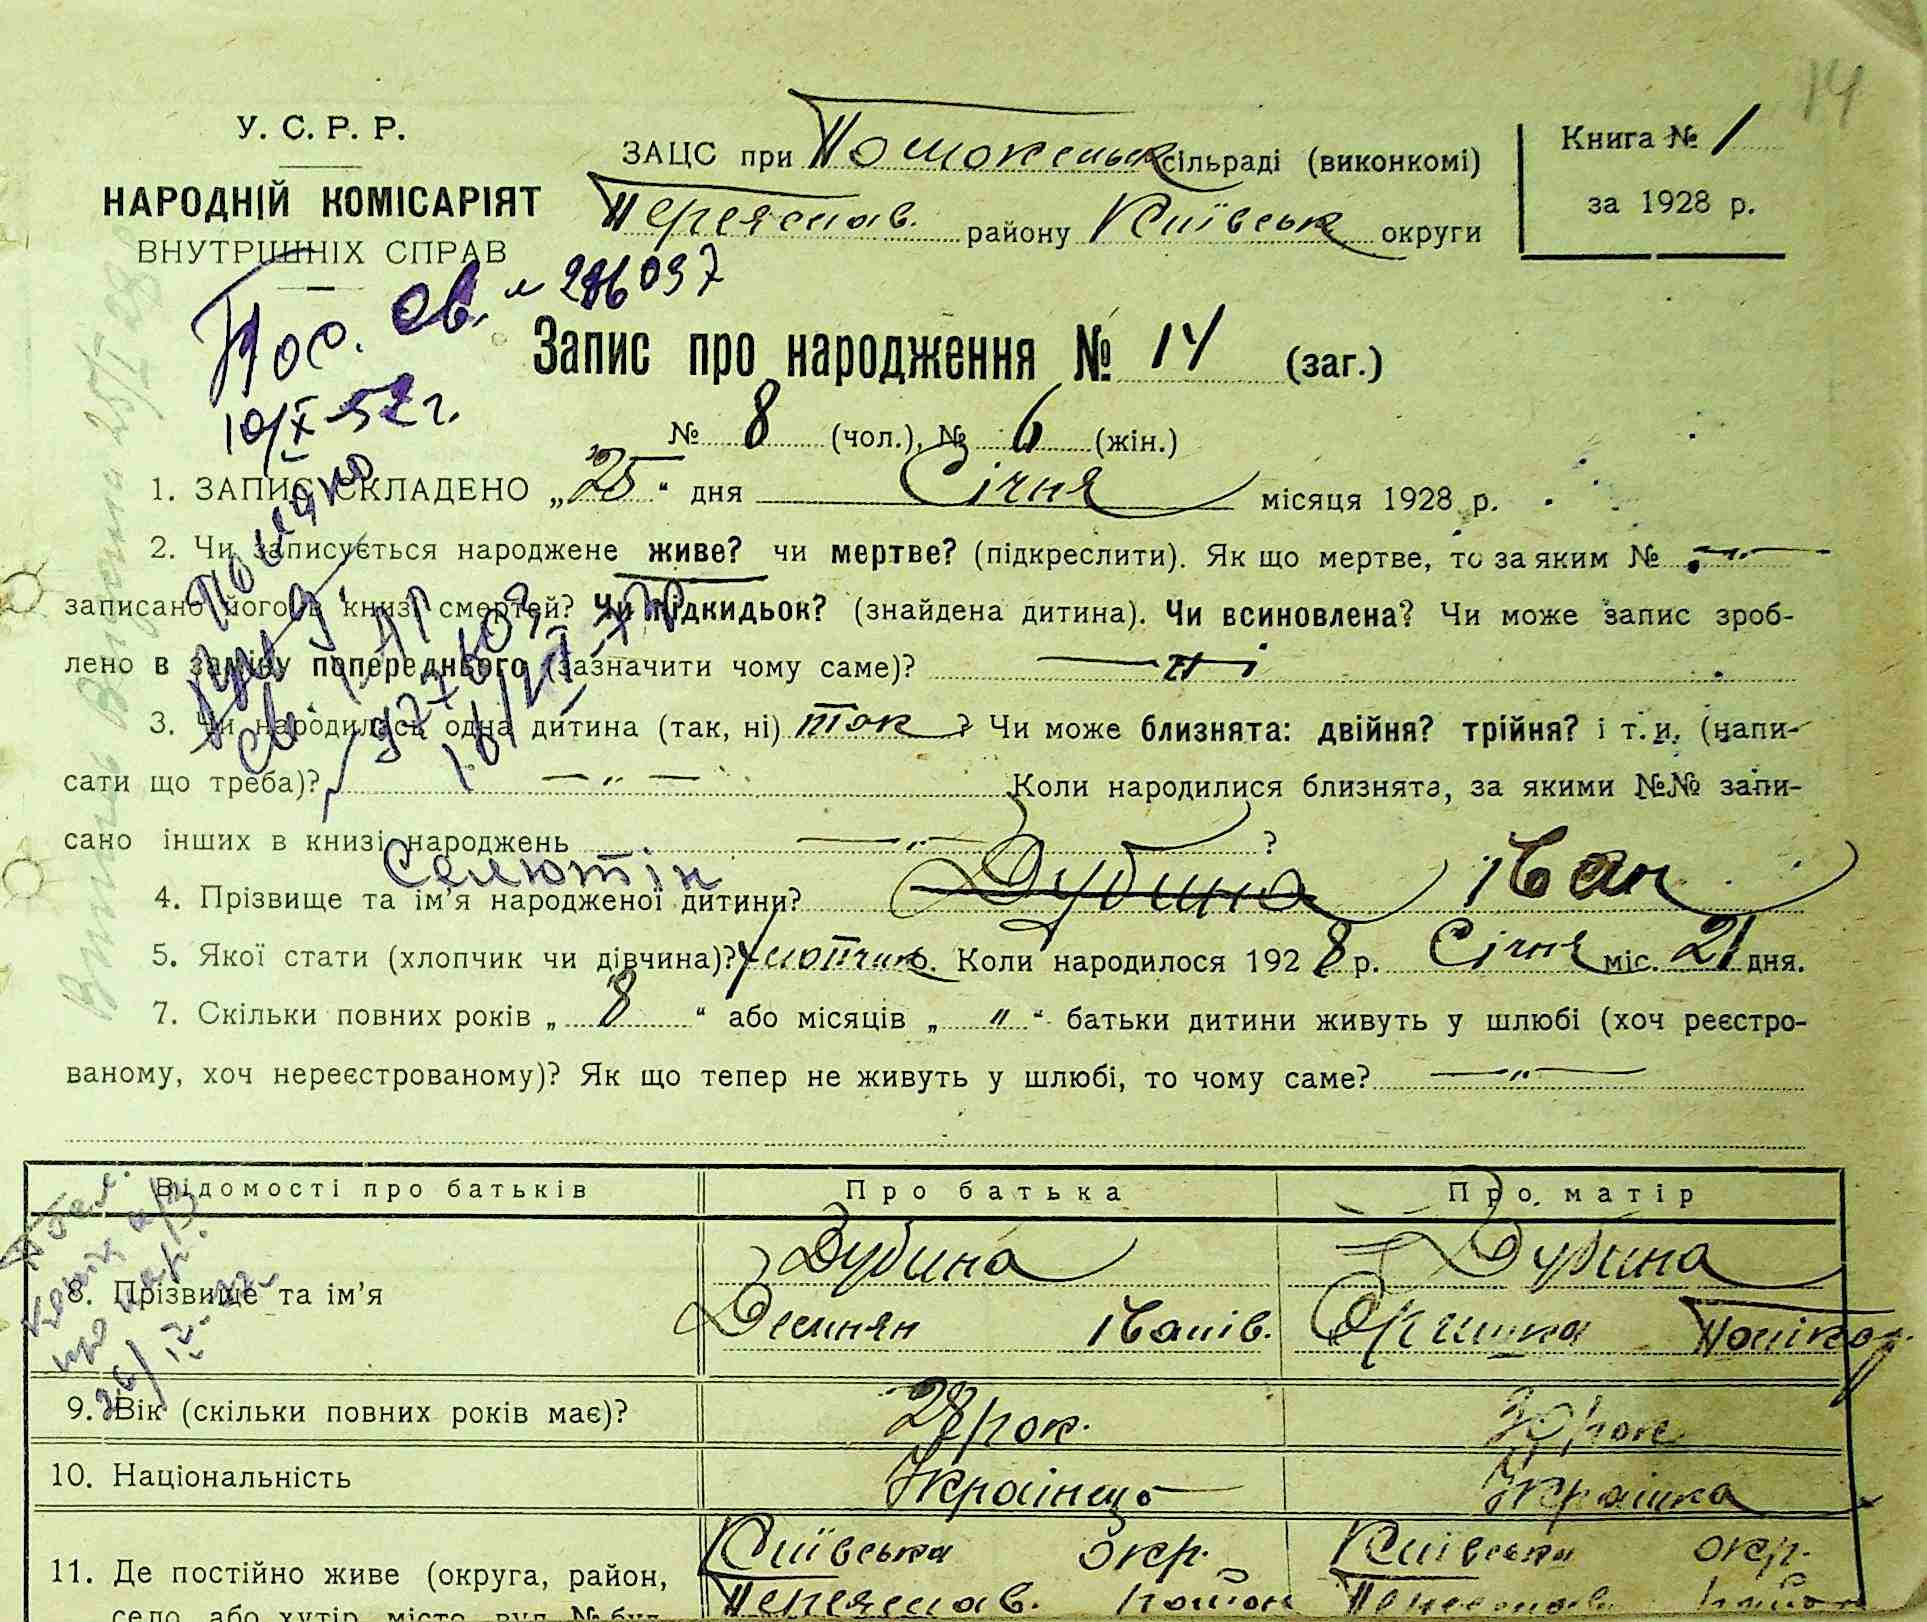 14
У. С. Р. Р.
НАРОДНІЙ КОМІСАРІЯТ
ВНУТРІШНІХ СПРАВ
ЗАЦС при сільраді (виконкомі)
Переяслав. району Київськ округи
Книга № 1
за 1928 р.
Пос. св. 286097
10/X-52 г.
Запис про народження № 14 (заг.)
№ 8 (чол.), № 6 (жін.)
1. ЗАПИС СКЛАДЕНО „25“ дня Січня місяця 1928 р.
2. Чи записується народжене живе? чи мертве? (підкреслити). Як що мертве, то за яким №
записано його в книзі смертей? Чи підкидьок? (знайдена дитина). Чи всиновлена? Чи може запис зроб-
лено в заміну попереднього (зазначити чому саме)? ні
3. Чи народилась одна дитина (так, ні) так ? Чи може близнята: двійня? трійня? і т. и. (напи-
сати що треба)? — „ — Коли народилися близнята, за якими №№ запи-
сано інших в книзі народжень — „ — ?
Селютін
4. Прізвище та ім'я народженої дитини? Дубина Іван
5. Якої стати (хлопчик чи дівчина)? Хлопчик. Коли народилося 1928 р. Січня міс. 21 дня.
7. Скільки повних років „ 8 “ або місяців „ " “ батьки дитини живуть у шлюбі (хоч реєстро-
ваному, хоч нереєстрованому)? Як що тепер не живуть у шлюбі, то чому саме? — „ —
Відомості про батьків Про батька Про матір
8. Прізвище та ім'я Дубина Дубина
Іванів.
9. Вік (скільки повних років має)? 28 рок. рок
10. Національність Українець Українка
11. Де постійно живе (округа, район, Київська окр. Київська окр.
село або хутір, місто, вул. № буд. Переяслав. район Переяслав район